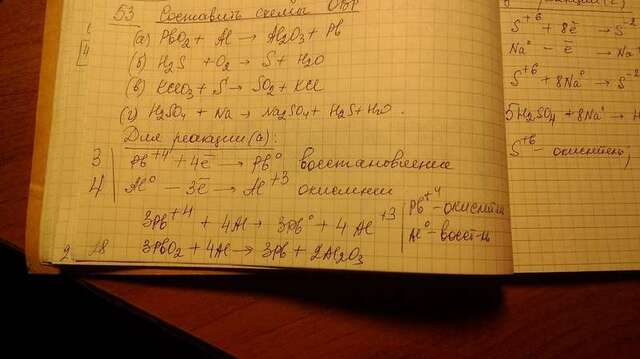 53 Составить схемы ОВР
(а) PbO₂ + Al → Al₂O₃ + Pb
(б) H₂S + O₂ → S + H₂O
(в) KClO₃ + S → SO₂ + KCl
(г) H₂SO₄ + Na → Na₂SO₄ + H₂S + H₂O.
Для реакции (а):
3 | Pb⁺⁴ + 4ē → Pb⁰ восстановление
4 | Al⁰ – 3ē → Al⁺³ окисление
3Pb⁺⁴ + 4Al → 3Pb⁰ + 4Al⁺³
Pb⁺⁴ – окислитель
Al⁰ – восст-ль
3PbO₂ + 4Al → 3Pb + 2Al₂O₃
S⁺⁶ + 8ē → S⁻²
Na⁰ – ē → Na
S⁺⁶ + 8Na⁰ → S⁻²
5H₂SO₄ + 8Na⁰ → H
S⁺⁶ – окислитель,